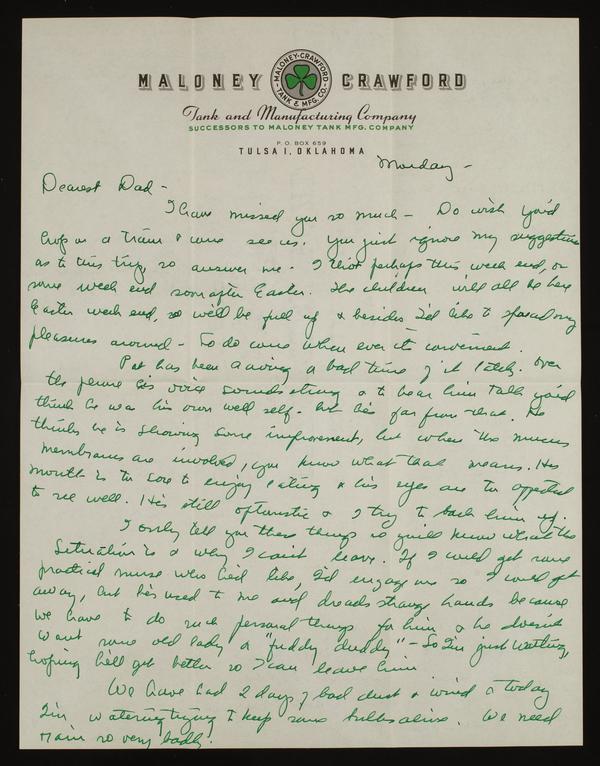 MALONEY CRAWFORD
MALONEY-CRAWFORD TANK & MFG. CO.
Tank and Manufacturing Company
SUCCESSORS TO MALONEY TANK MFG. COMPANY
P. O. BOX 659
TULSA 1, OKLAHOMA
Monday -
Dearest Dad -
I have missed you so much - Do wish you'd
hop on a train & come see us. You just ignore my suggestions
as to this trip, so answer me. I thot perhaps this week end, or
some week end soon after Easter. The children will all be here
Easter week end, so we'll be full up & besides I'd like to spread my
pleasures around - So do come when ever its convenient.
Pat has been having a bad time of it lately. Over
the phone his voice sounds strong & to hear him talk you'd
think he was his own well self - but he's far from that. He
thinks he is showing some improvement, but when the mucus
membranes are involved, you know what that means. His
mouth is too sore to enjoy eating & his eyes are too affected
to see well. He's still optomistic & I try to back him up.
I only tell you these things so you'll know what the
situation is & why I can't leave. If I could get some
practical nurse who he'd like, I'd engage one so I could get
away, but he's used to me and dreads strange hands because
we have to do such personal things for him & he doesn't
want some old lady or "fuddy duddy" - So I'm just waiting,
hoping he'll get better so I can leave him
We have had 2 days of bad dust & wind & today
I'm watering trying to keep some bulbs alive. We need
rain so very badly.